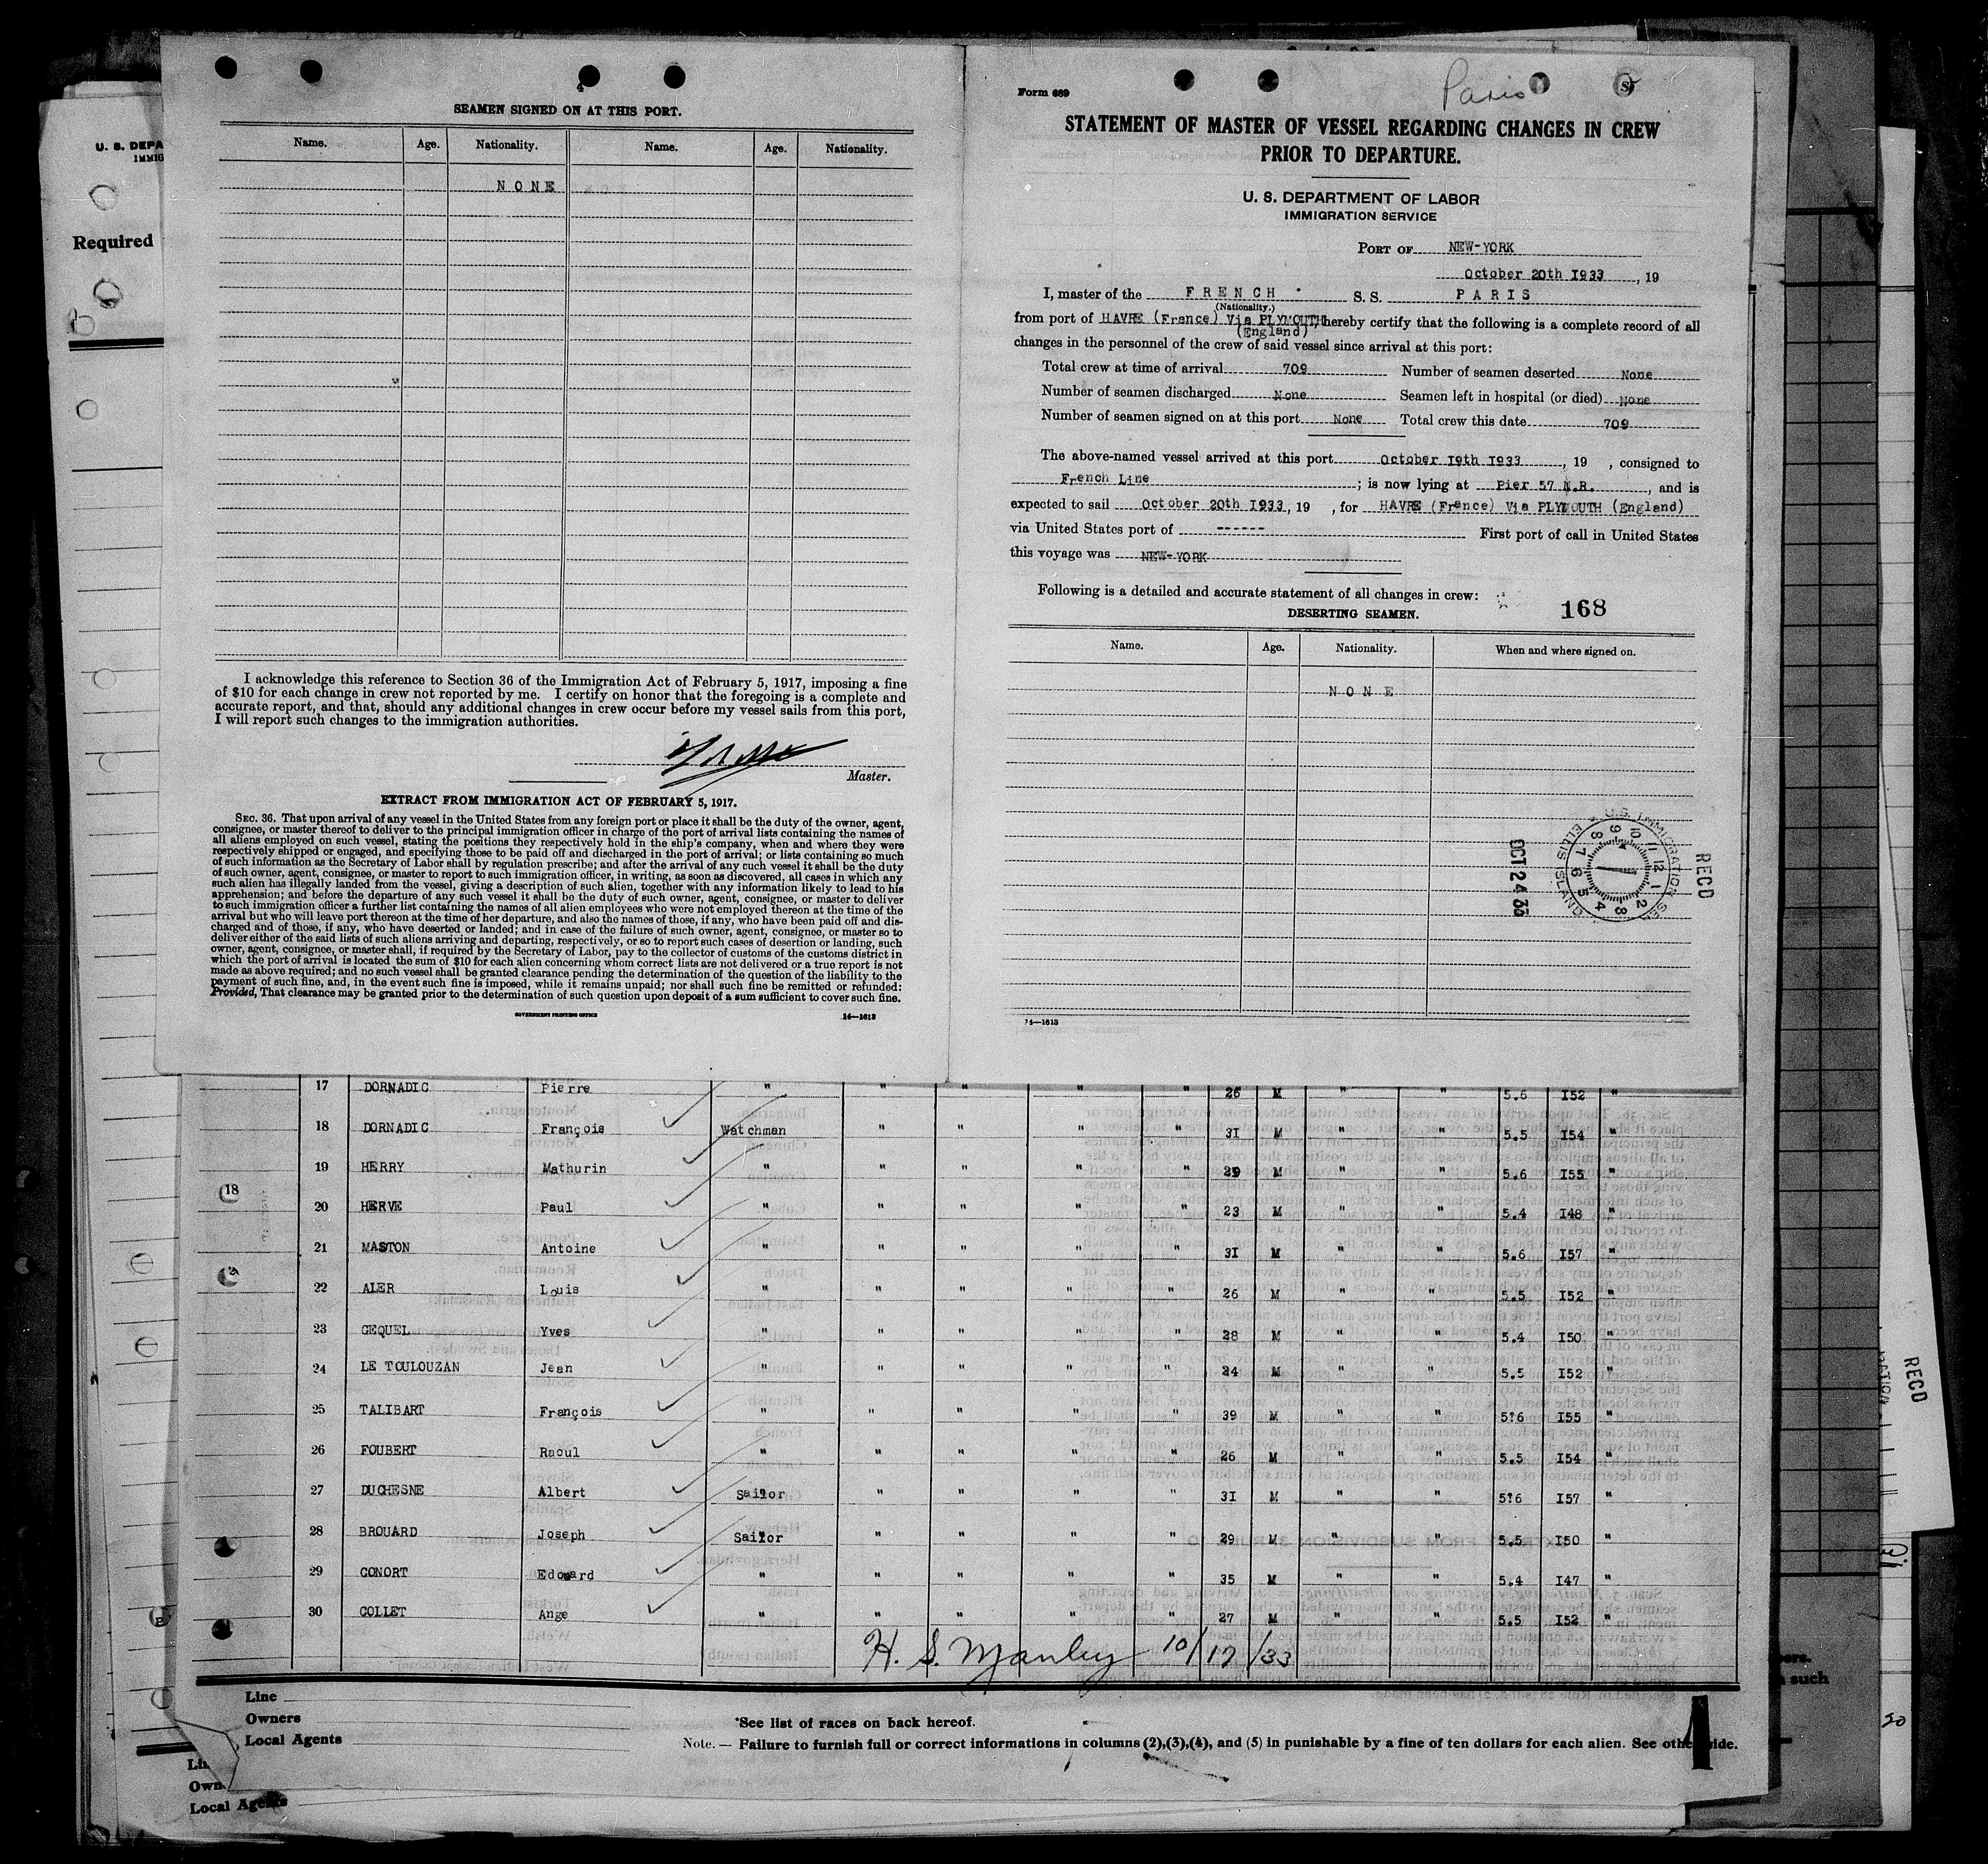 4
SEAMEN SIGNED ON AT THIS PORT.
Name. Age. Nationality. Name. Age. Nationality.
NONE
I acknowledge this reference to Section 36 of the Immigration Act of February 5, 1917, imposing a fine
of $10 for each change in crew not reported by me. I certify on honor that the foregoing is a complete and
accurate report, and that, should any additional changes in crew occur before my vessel sails from this port,
I will report such changes to the immigration authorities.
Master.
EXTRACT FROM IMMIGRATION ACT OF FEBRUARY 5, 1917.
SEC. 36. That upon arrival of any vessel in the United States from any foreign port or place it shall be the duty of the owner, agent,
consignee, or master thereof to deliver to the principal immigration officer in charge of the port of arrival lists containing the names of
all aliens employed on such vessel, stating the positions they respectively hold in the ship's company, when and where they were
respectively shipped or engaged, and specifying those to be paid off and discharged in the port of arrival; or lists containing so much
of such information as the Secretary of Labor shall by regulation prescribe; and after the arrival of any cuch vessel it shall be the duty
of such owner, agent, consignee, or master to report to such immigration officer, in writing, as soon as discovered, all cases in which any
such alien has illegally landed from the vessel, giving a description of such alien, together with any information likely to lead to his
apprehension; and before the departure of any such vessel it shall be the duty of such owner, agent, consignee, or master to deliver
to such immigration officer a further list containing the names of all alien employees who were not employed thereon at the time of the
arrival but who will leave port thereon at the time of her departure, and also the names of those, if any, who have been paid off and dis-
charged and of those, if any, who have deserted or landed; and in case of the failure of such owner, agent, consignee, or master so to
deliver either of the said lists of such aliens arriving and departing, respectively, or so to report such cases of desertion or landing, such
owner, agent, consignee, or master shall, if required by the Secretary of Labor, pay to the collector of customs of the customs district in
which the port of arrival is located the sum of $10 for each alien concerning whom correct lists are not delivered or a true report is not
made as above required; and no such vessel shall be granted clearance pending the determination of the question of the liability to the
payment of such fine, and, in the event such fine is imposed, while it remains unpaid; nor shall such fine be remitted or refunded:
Provided, That clearance may be granted prior to the determination of such question upon deposit of a sum sufficient to cover such fine.
GOVERNMENT PRINTING OFFICE 14—1613
Form 689
Paris
STATEMENT OF MASTER OF VESSEL REGARDING CHANGES IN CREW
PRIOR TO DEPARTURE.
U. S. DEPARTMENT OF LABOR
IMMIGRATION SERVICE
PORT OF NEW-YORK
October 20th I933, 19
I, master of the FRENCH S.S. PARIS
(Nationality.)
from port of HAVRE (France) Via PLYMOUTH hereby certify that the following is a complete record of all
(England)
changes in the personnel of the crew of said vessel since arrival at this port:
Total crew at time of arrival 709 Number of seamen deserted None
Number of seamen discharged None Seamen left in hospital (or died) None
Number of seamen signed on at this port None Total crew this date 709
The above-named vessel arrived at this port October I9th I933, 19 , consigned to
French Line ; is now lying at Pier 57 N.R. , and is
expected to sail October 20th I933, 19 , for HAVRE (France) Via PLYMOUTH (England)
via United States port of ------ First port of call in United States
this voyage was NEW-YORK
Following is a detailed and accurate statement of all changes in crew:
168
DESERTING SEAMEN.
Name. Age. Nationality. When and where signed on.
NONE
RECD
U.S. IMMIGRATION SER
ELLIS ISLAND
OCT 24 33
14—1613
U. S. DEPA
IMMIG
Required
17 DORNADIC Pierre " " " " " 26 M " " 5.6 I52 "
18 DORNADIC François Watchman " " " " 3I M " " 5.5 I54 "
19 HERRY Mathurin " " " " " 29 M " " 5.6 I55 "
20 HERVE Paul " " " " " 23 M " " 5.4 I48 "
21 MASTON Antoine " " " " " 3I M " " 5.6 I57 "
22 ALER Louis " " " " " 26 M " " 5.5 I52 "
23 GEQUEL Yves " " " " " 28 M " " 5.4 I50 "
24 LE TOULOUZAN Jean " " " " " 24 M " " 5.5 I52 "
25 TALIBART François " " " " " 39 M " " 5.6 I55 "
26 FOUBERT Raoul " " " " " 26 M " " 5.5 I54 "
27 DUCHESNE Albert Sailor " " " " 3I M " " 5.6 I57 "
28 BROUARD Joseph Sailor " " " " 29 M " " 5.5 I50 "
29 CONORT Edouard " " " " " 35 M " " 5.4 I47 "
30 COLLET Ange " " " " " 27 M " " 5.5 I52 "
H. S. Manley 10/17/33
Line
Owners
Local Agents
*See list of races on back hereof.
Note. — Failure to furnish full or correct informations in columns (2),(3),(4), and (5) in punishable by a fine of ten dollars for each alien. See other side.
1
Local Agents
RECD
such
18